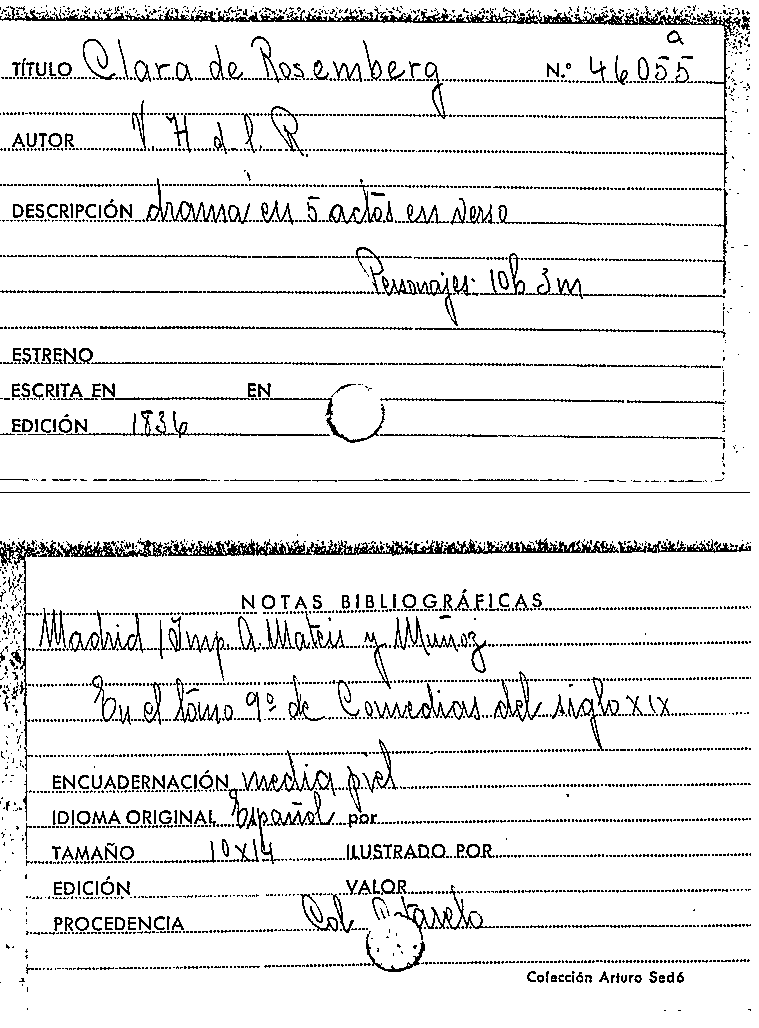 a
TÍTULO Clara de Rosemberg N.º 46055
AUTOR V. H. d. l. R.
DESCRIPCIÓN drama en 5 actos en verso
Personajes: 10h 3m
ESTRENO
ESCRITA EN EN
EDICIÓN 1836
NOTAS BIBLIOGRÁFICAS
Madrid / Imp. A. Mateis y Muñoz
En el tomo 9º de Comedias del siglo XIX
ENCUADERNACIÓN media piel
IDIOMA ORIGINAL Español por
TAMAÑO 10x14 ILUSTRADO POR
EDICIÓN VALOR
PROCEDENCIA Col.
Colección Arturo Sedó